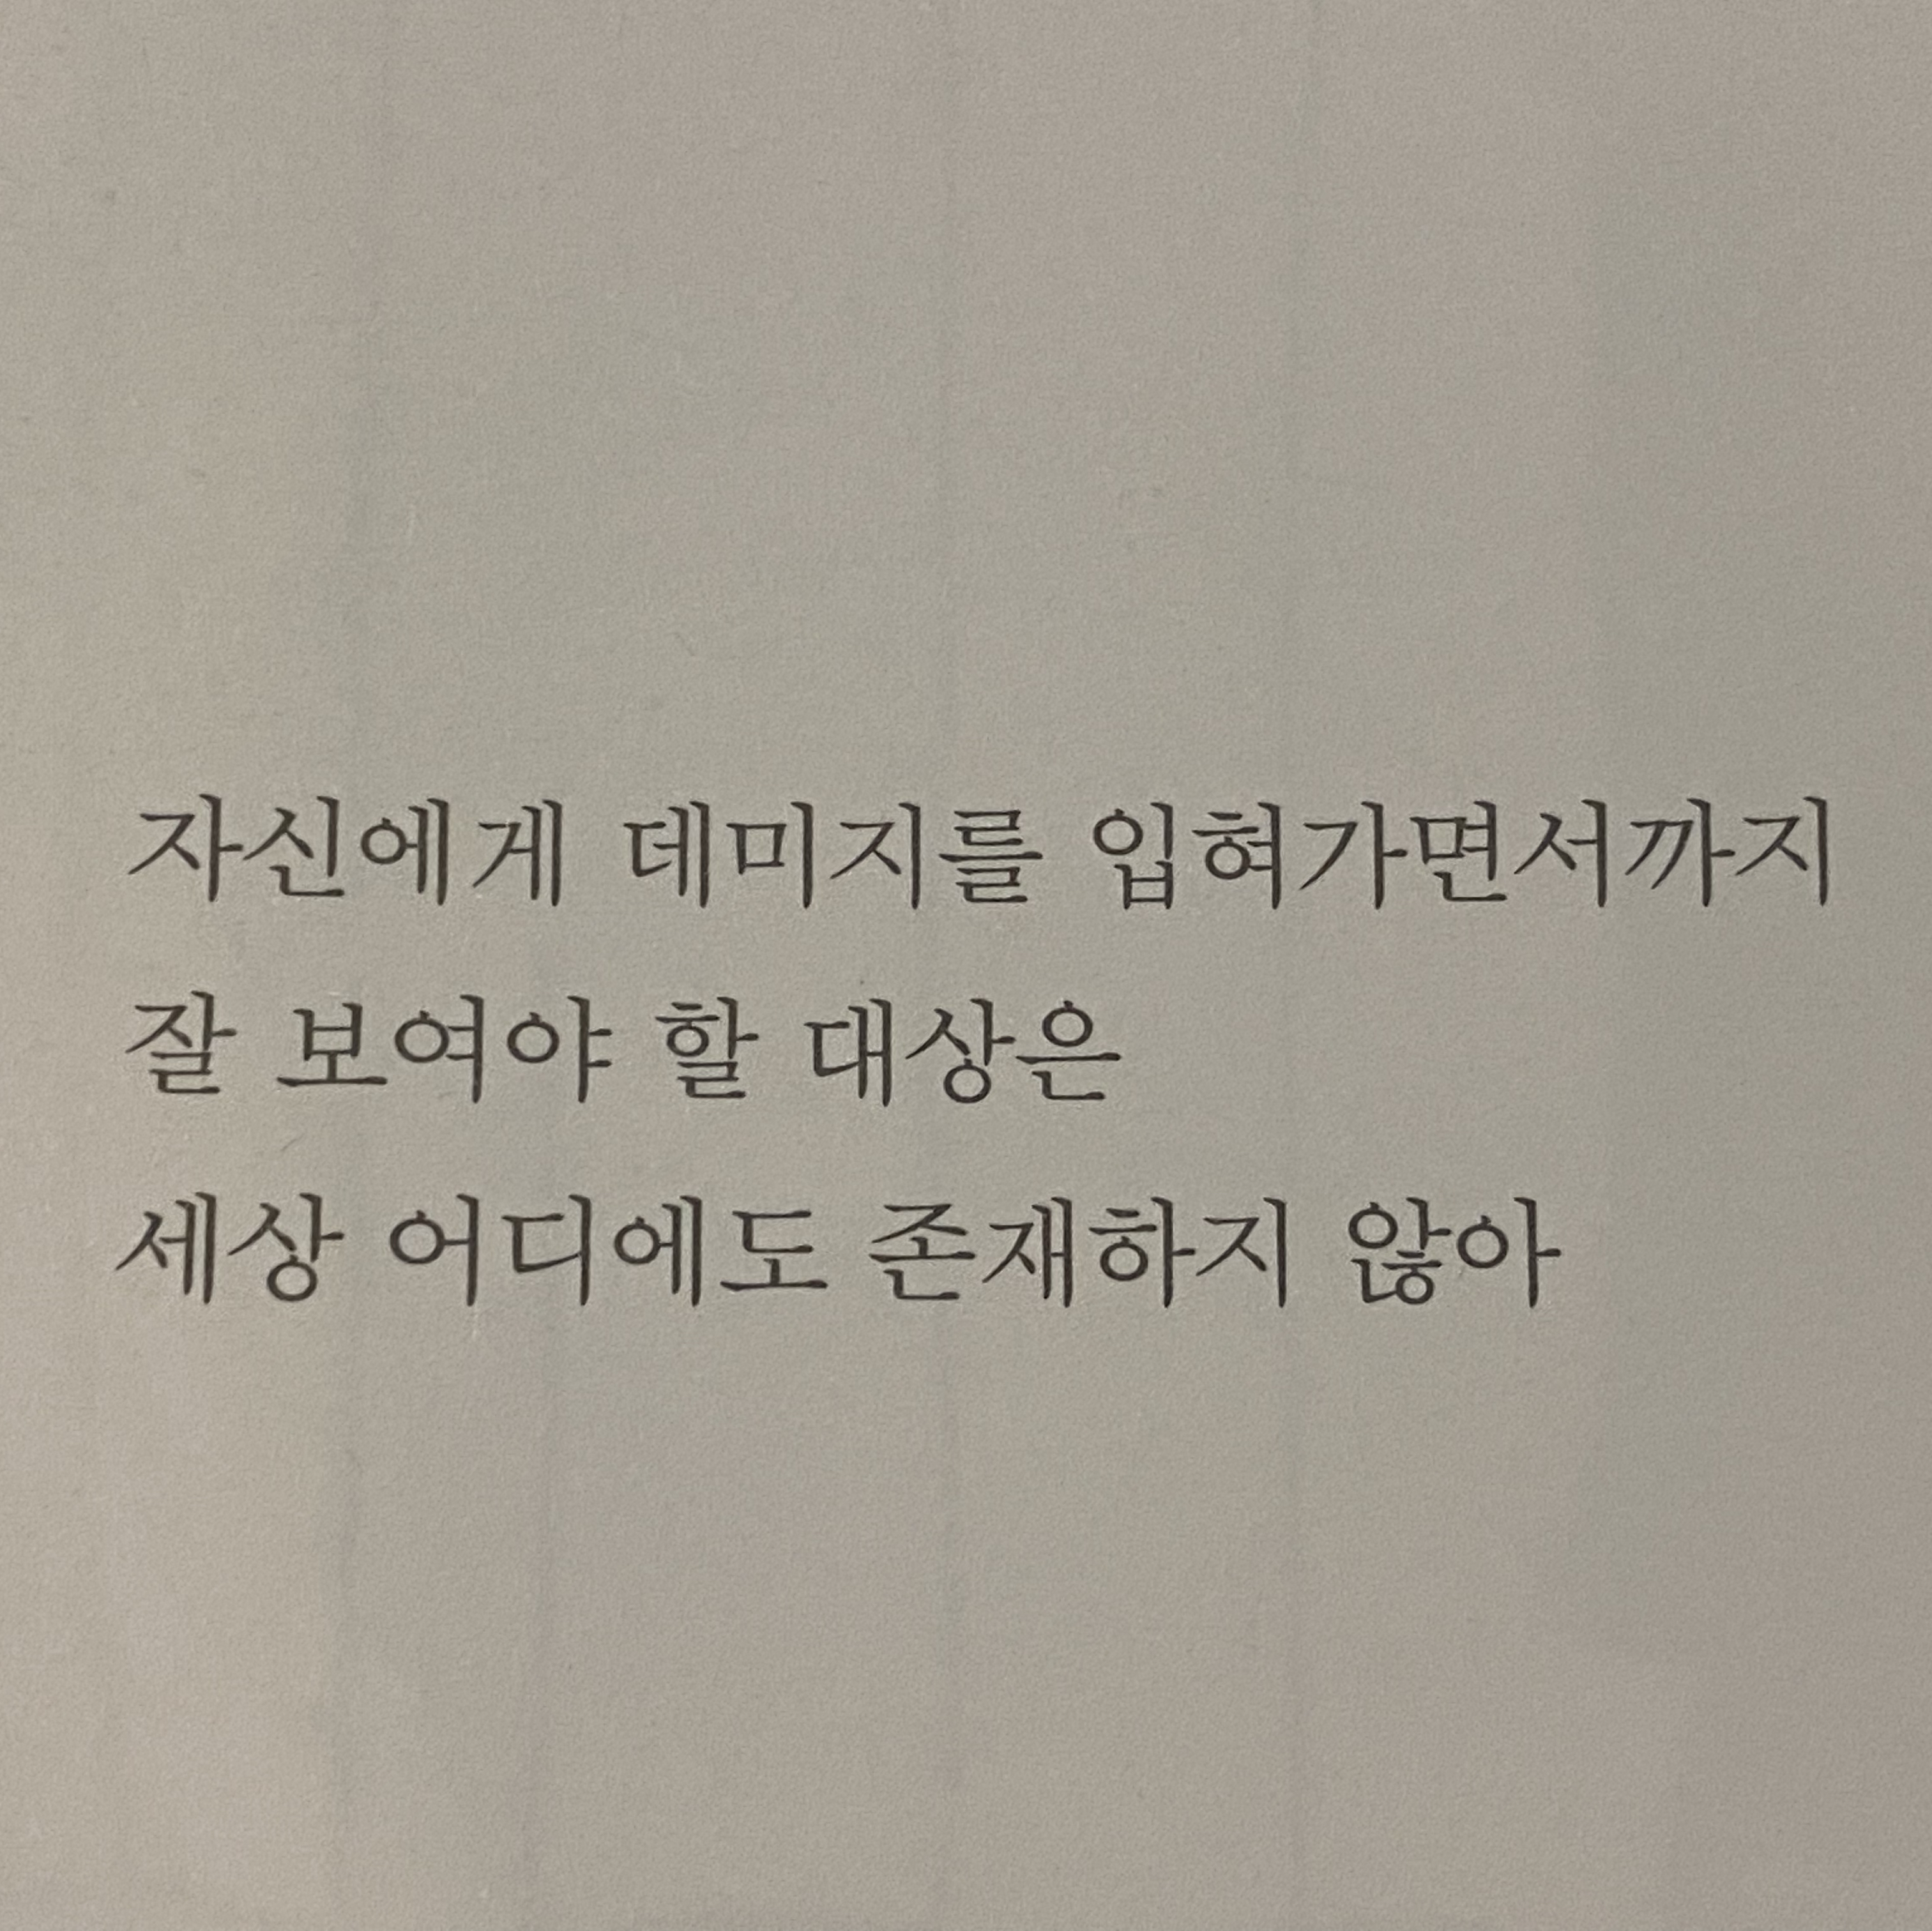 자신에게 데미지를 입혀가면서까지
잘 보여야 할 대상은
세상 어디에도 존재하지 않아